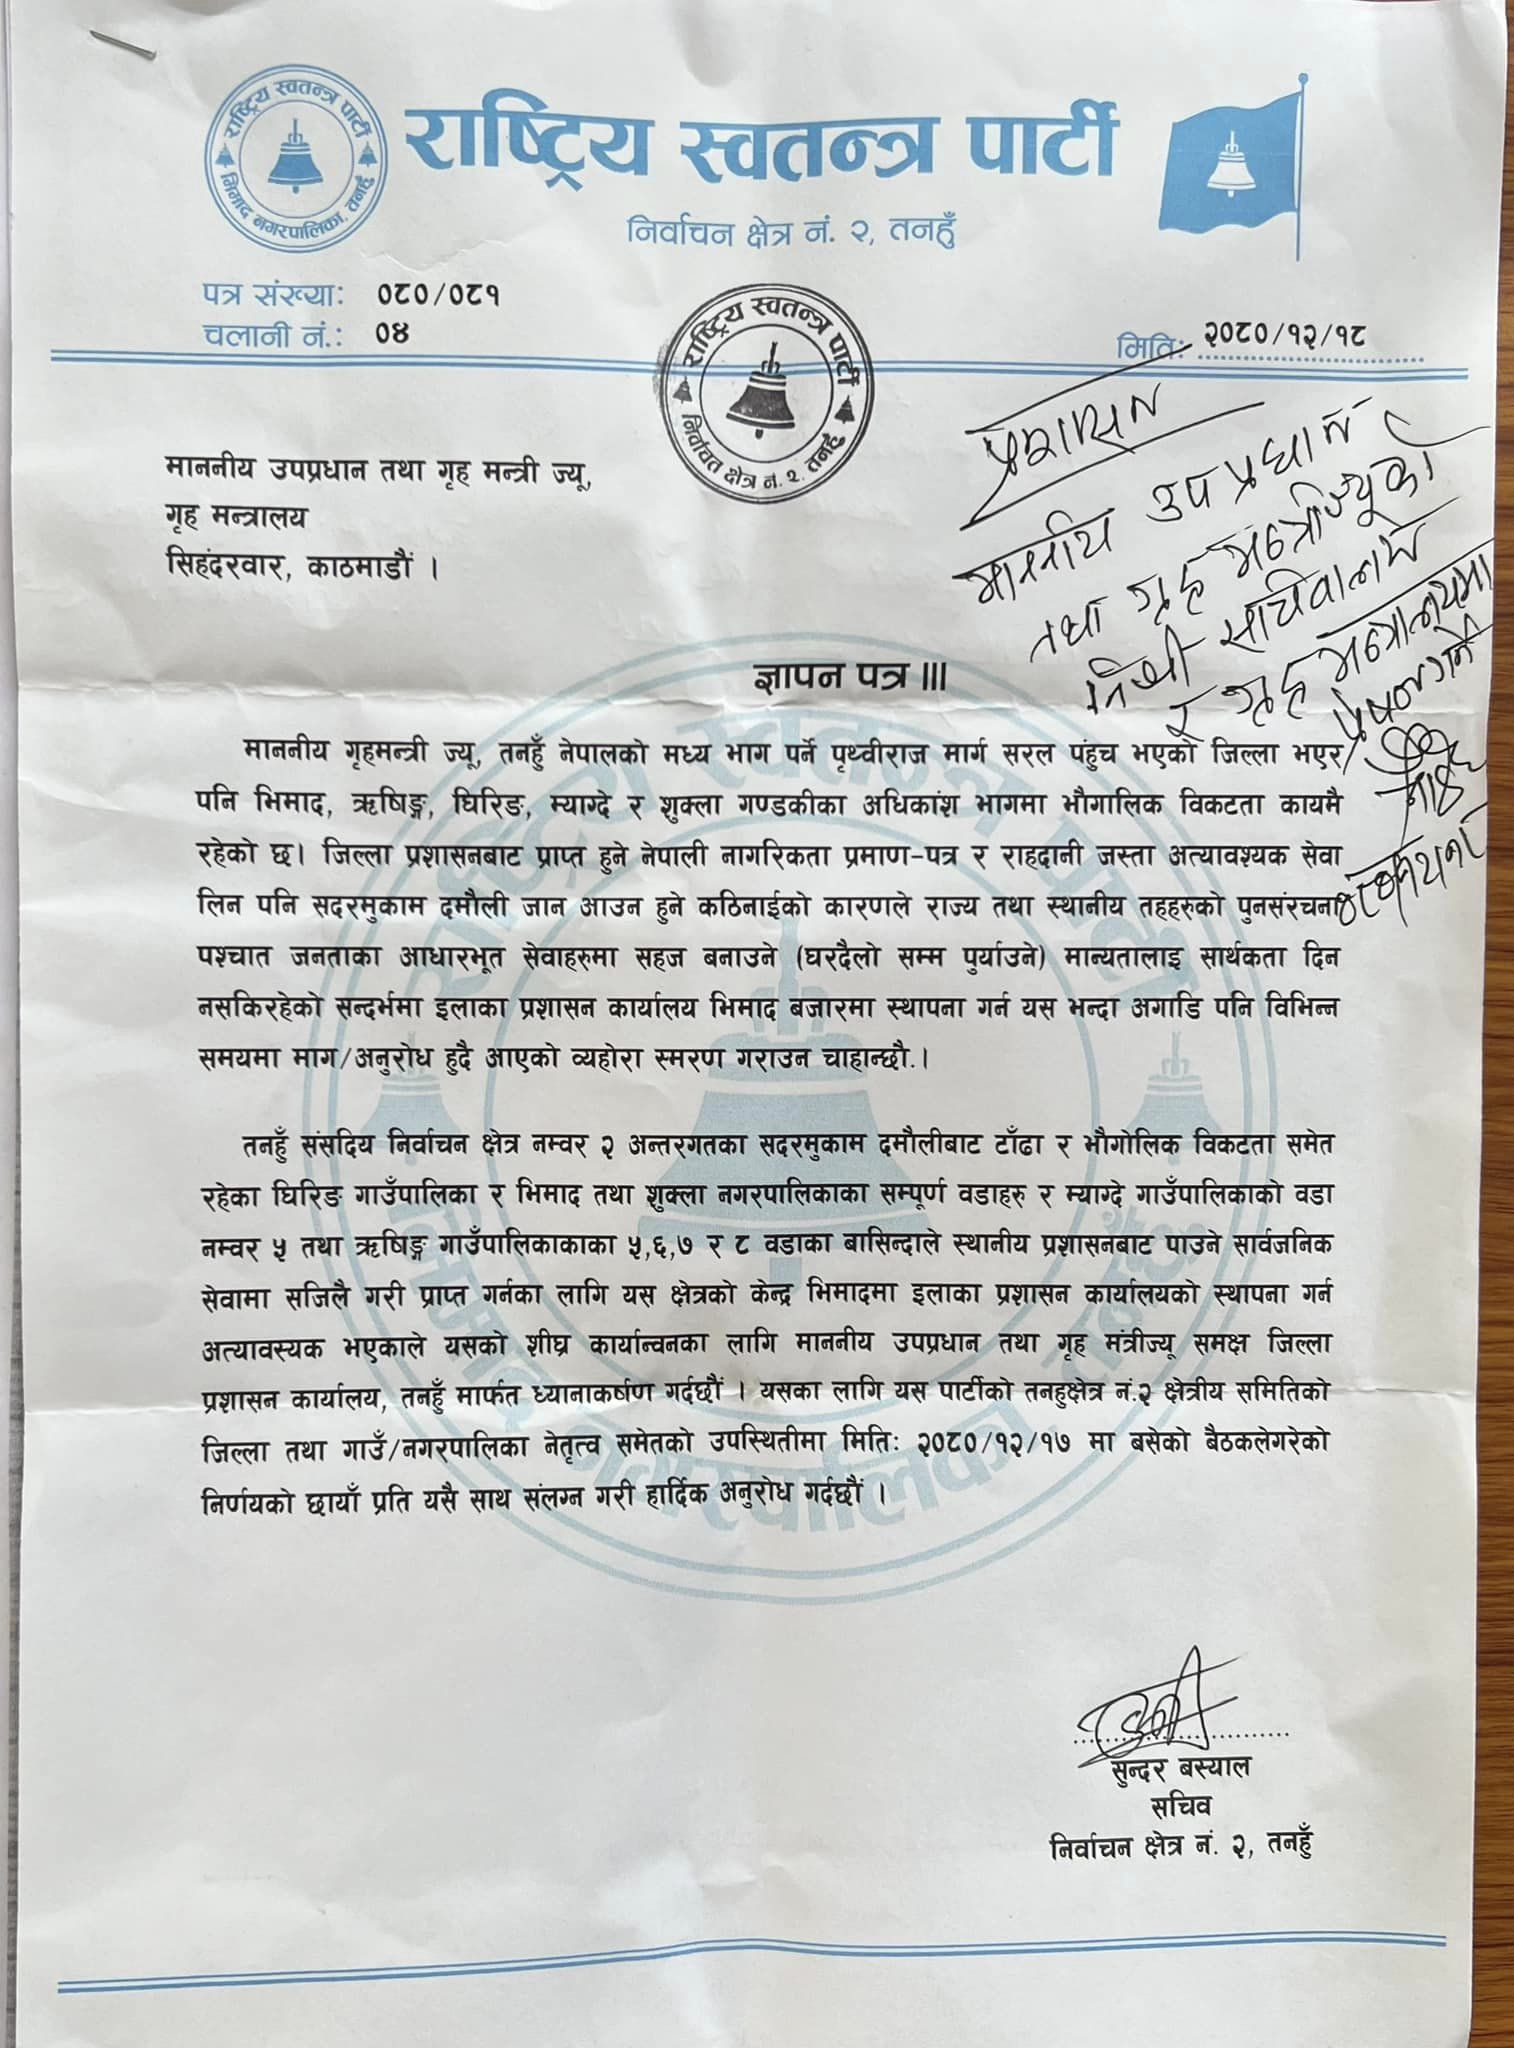 राष्ट्रिय स्वतन्त्र पार्टी
भिमाद नगरपालिका, तनहुँ
राष्ट्रिय स्वतन्त्र पार्टी
निर्वाचन क्षेत्र नं. २, तनहुँ
पत्र संख्या: ०८०/०८१
चलानी नं.: ०४
मिति: २०८०/१२/१८
राष्ट्रिय स्वतन्त्र पार्टी
निर्वाचित क्षेत्र नं. २, तनहुँ
माननीय उपप्रधान तथा गृह मन्त्री ज्यू,
गृह मन्त्रालय
सिहंदरवार, काठमाडौं ।
प्रशासन
माननीय उप प्रधान
तथा गृह मन्त्रीज्यूको
निजी सचिवालय
र गृह मन्त्रालयमा
प्रेषण गर्ने
ज्ञापन पत्र ॥।
माननीय गृहमन्त्री ज्यू, तनहुँ नेपालको मध्य भाग पर्ने पृथ्वीराज मार्ग सरल पंहुच भएको जिल्ला भएर
पनि भिमाद, ऋषिङ्ग, घिरिङ, म्याग्दे र शुक्ला गण्डकीका अधिकांश भागमा भौगालिक विकटता कायमै
रहेको छ। जिल्ला प्रशासनबाट प्राप्त हुने नेपाली नागरिकता प्रमाण-पत्र र राहदानी जस्ता अत्यावश्यक सेवा
लिन पनि सदरमुकाम दमौली जान आउन हुने कठिनाईको कारणले राज्य तथा स्थानीय तहहरुको पुनसंरचना
पश्चात जनताका आधारभूत सेवाहरुमा सहज बनाउने (घरदैलो सम्म पुर्याउने) मान्यतालाइ सार्थकता दिन
नसकिरहेको सन्दर्भमा इलाका प्रशासन कार्यालय भिमाद बजारमा स्थापना गर्न यस भन्दा अगाडि पनि विभिन्न
समयमा माग/अनुरोध हुदै आएको व्यहोरा स्मरण गराउन चाहान्छौ.।
तनहुँ संसदिय निर्वाचन क्षेत्र नम्वर २ अन्तरगतका सदरमुकाम दमौलीबाट टाँढा र भौगोलिक विकटता समेत
रहेका घिरिङ गाउँपालिका र भिमाद तथा शुक्ला नगरपालिकाका सम्पूर्ण वडाहरु र म्याग्दे गाउँपालिकाको वडा
नम्वर ५ तथा ऋषिङ्ग गाउँपालिकाकाका ५,६,७ र ८ वडाका बासिन्दाले स्थानीय प्रशासनबाट पाउने सार्वजनिक
सेवामा सजिलै गरी प्राप्त गर्नका लागि यस क्षेत्रको केन्द्र भिमादमा इलाका प्रशासन कार्यालयको स्थापना गर्न
अत्यावस्यक भएकाले यसको शीघ्र कार्यान्वनका लागि माननीय उपप्रधान तथा गृह मंत्रीज्यू समक्ष जिल्ला
प्रशासन कार्यालय, तनहुँ मार्फत ध्यानाकर्षाण गर्दछौं । यसका लागि यस पार्टीको तनहुक्षेत्र नं.२ क्षेत्रीय समितिको
जिल्ला तथा गाउँ/नगरपालिका नेतृत्व समेतको उपस्थितीमा मिति: २०८०/१२/१७ मा बसेको बैठकलेगरेको
निर्णयको छायाँ प्रति यसै साथ संलग्न गरी हार्दिक अनुरोध गर्दछौं ।
सुन्दर बस्याल
सचिव
निर्वाचन क्षेत्र नं. २, तनहुँ